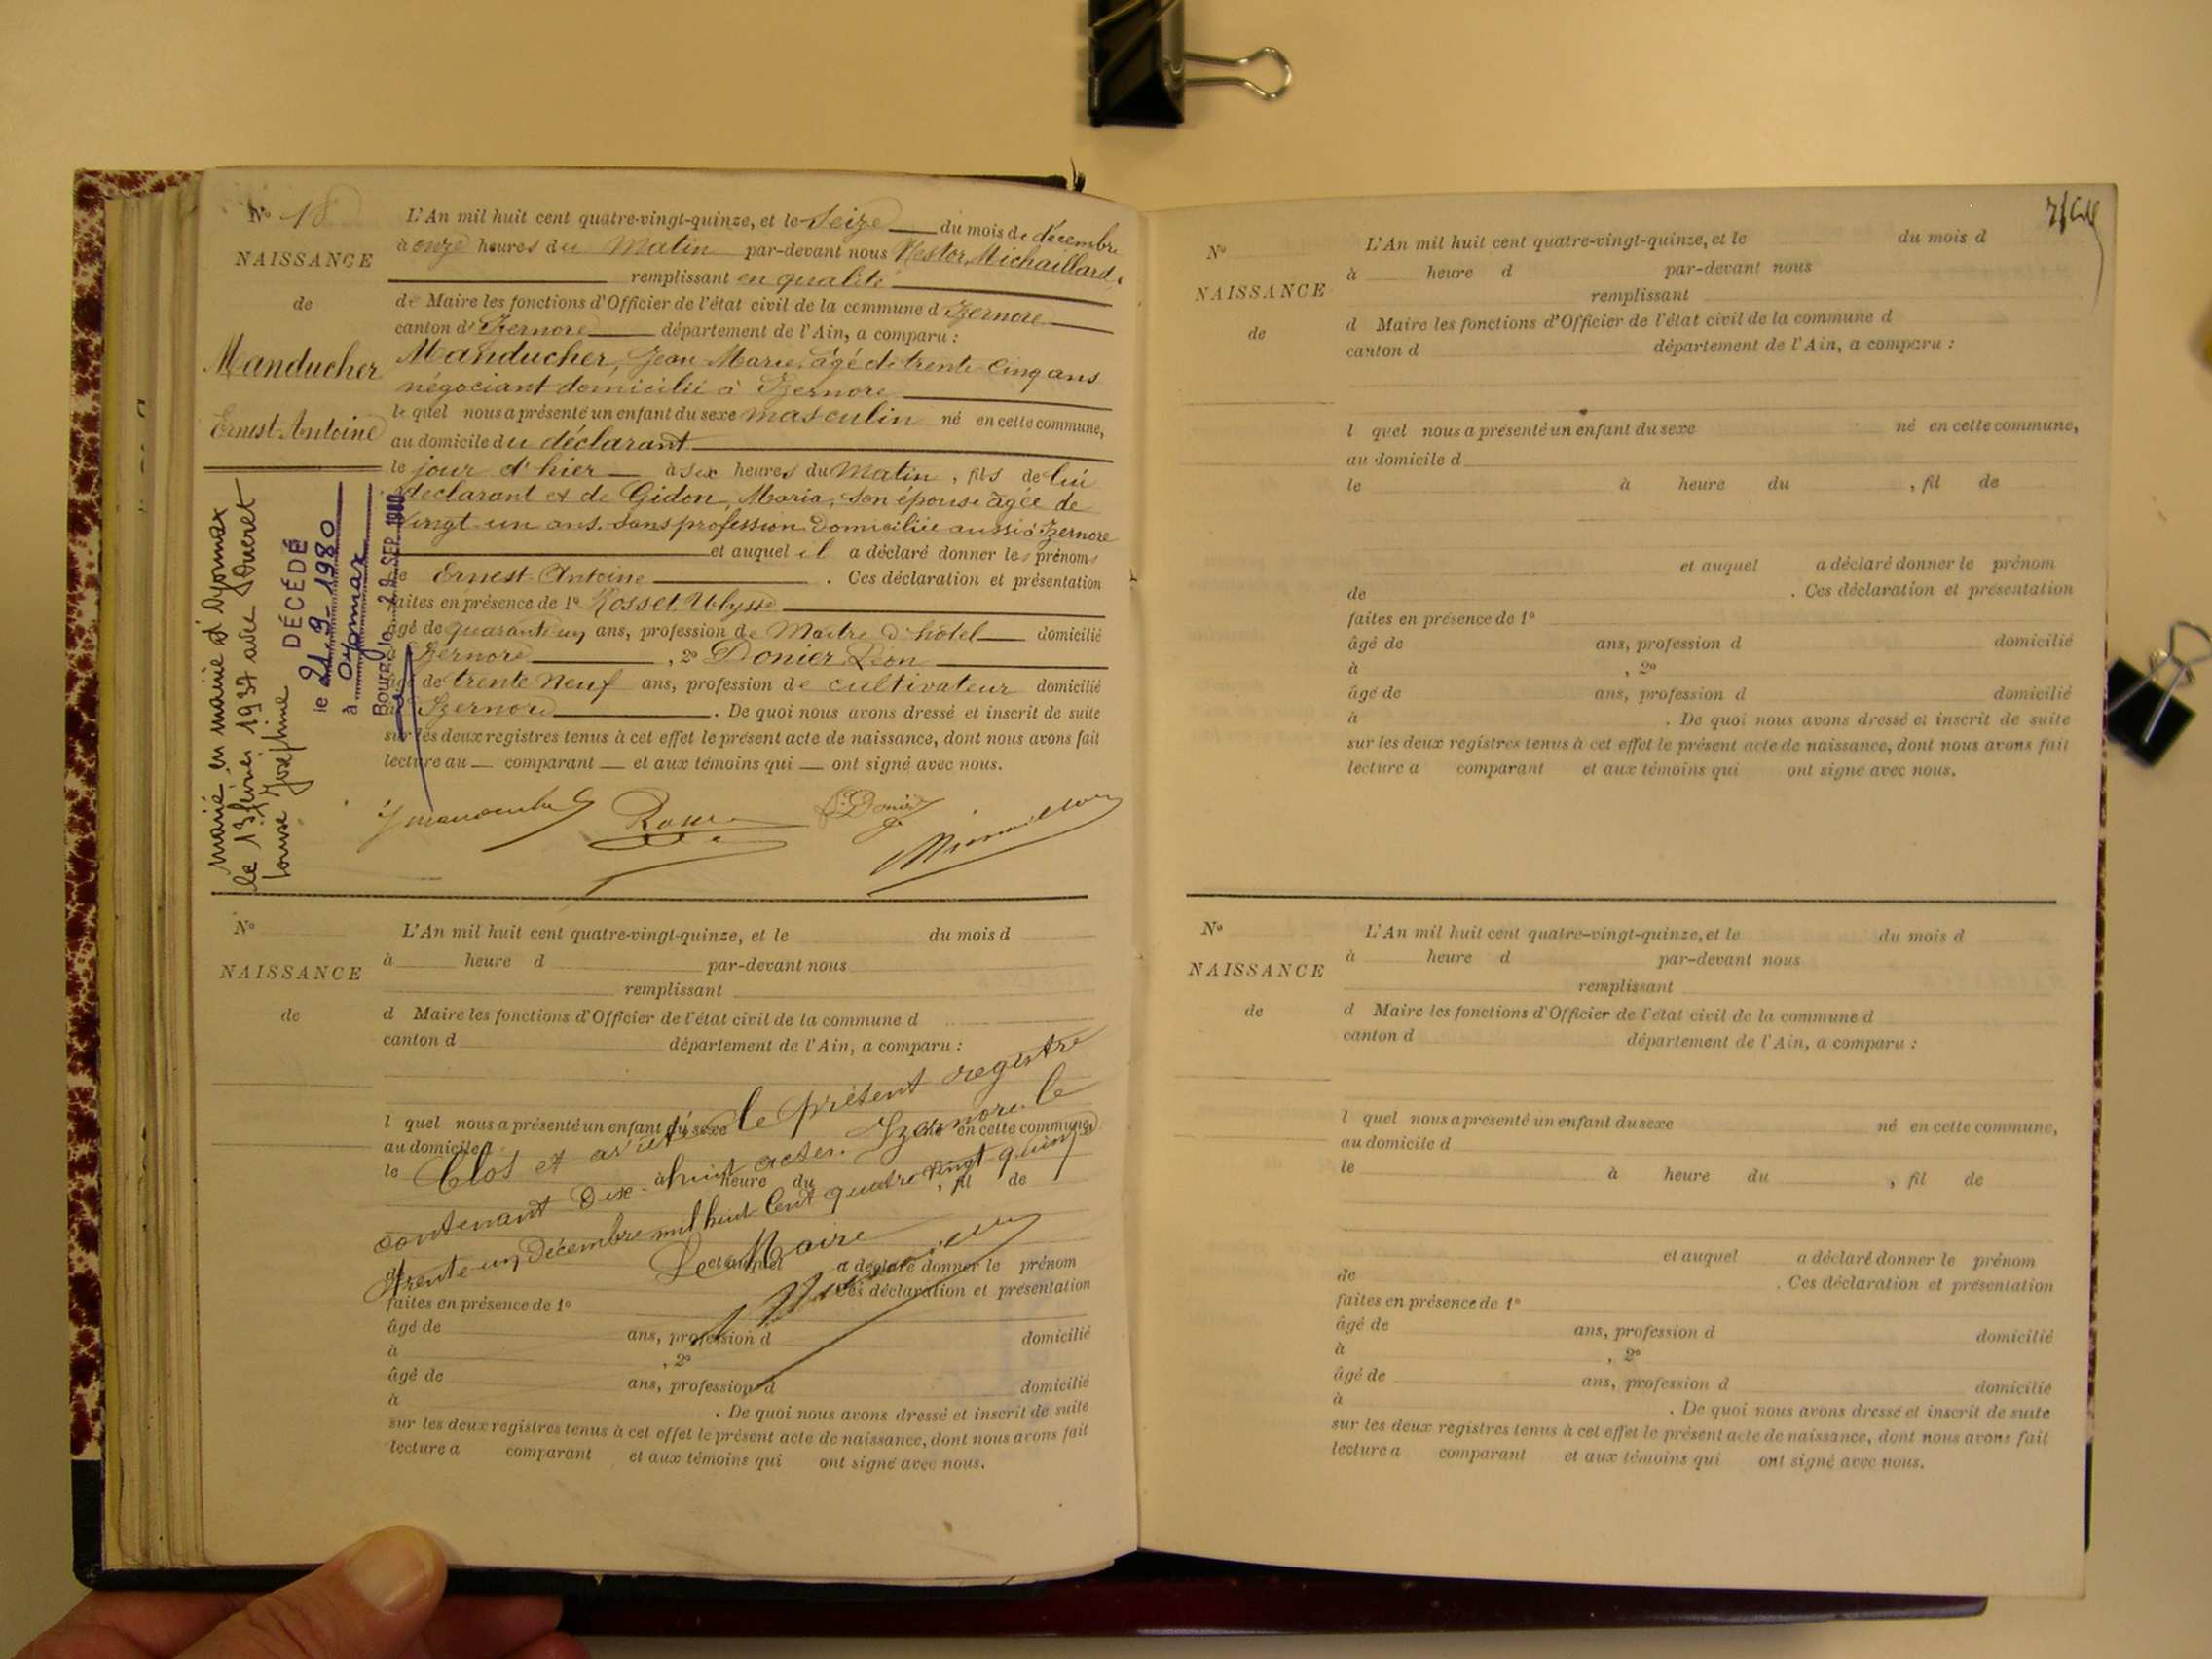 N° 18
NAISSANCE
de
Manducher
Ernest-Antoine
L'An mil huit cent quatre-vingt-quinze, et le Seize du mois de décembre
à onze heures du Matin par-devant nous Nestor, Michaillard,
remplissant en qualité
de Maire les fonctions d'Officier de l'état civil de la commune d'Izernore
canton d'Izernore département de l'Ain, a comparu :
Manducher, Jean-Marie, âgé de trente-cinq ans
négociant domicilié à Izernore
le quel nous a présenté un enfant du sexe masculin né en cette commune,
au domicile du déclarant
le jour d'hier à six heures du Matin, fils de lui
déclarant et de Gidon, Maria, son épouse âgée de
vingt un ans. sans profession Domiciliée aussi à Izernore
et auquel il a déclaré donner les prénoms
de Ernest-Antoine . Ces déclaration et présentation
faites en présence de 1° Rosset, Ulysse
âgé de quarante un ans, profession de Maître d'hôtel domicilié
à Izernore , 2° Donier, Léon
âgé de trente neuf ans, profession de cultivateur domicilié
à Izernore . De quoi nous avons dressé et inscrit de suite
sur les deux registres tenus à cet effet le présent acte de naissance, dont nous avons fait
lecture au comparant et aux témoins qui ont signé avec nous.
marié en mairie d'Oyonnax
le 13 février 1937 avec Ducret
Louise Joséphine
DÉCÉDÉ
le 21-9-1980
à Oyonnax
Bourg, le 29 SEP 1980
N°
NAISSANCE
de
L'An mil huit cent quatre-vingt-quinze, et le du mois d
à heure d par-devant nous
remplissant
d Maire les fonctions d'Officier de l'état civil de la commune d
canton d département de l'Ain, a comparu :
l quel nous a présenté un enfant du sexe né en cette commune,
au domicile d
le à heure du , fil de
et auquel a déclaré donner le prénom
de . Ces déclaration et présentation
faites en présence de 1°
âgé de ans, profession d domicilié
à , 2°
âgé de ans, profession d domicilié
à . De quoi nous avons dressé et inscrit de suite
sur les deux registres tenus à cet effet le présent acte de naissance, dont nous avons fait
lecture a comparant et aux témoins qui ont signé avec nous.
Clos et arrêté le présent registre
contenant Dix-huit actes. Izernore le
trente un Décembre mil huit cent quatre vingt quinze
Le Maire
N°
NAISSANCE
de
L'An mil huit cent quatre-vingt-quinze, et le du mois d
à heure d par-devant nous
remplissant
d Maire les fonctions d'Officier de l'état civil de la commune d
canton d département de l'Ain, a comparu :
l quel nous a présenté un enfant du sexe né en cette commune,
au domicile d
le à heure du , fil de
et auquel a déclaré donner le prénom
de . Ces déclaration et présentation
faites en présence de 1°
âgé de ans, profession d domicilié
à , 2°
âgé de ans, profession d domicilié
à . De quoi nous avons dressé et inscrit de suite
sur les deux registres tenus à cet effet le présent acte de naissance, dont nous avons fait
lecture a comparant et aux témoins qui ont signé avec nous.
N°
NAISSANCE
de
L'An mil huit cent quatre-vingt-quinze, et le du mois d
à heure d par-devant nous
remplissant
d Maire les fonctions d'Officier de l'état civil de la commune d
canton d département de l'Ain, a comparu :
l quel nous a présenté un enfant du sexe né en cette commune,
au domicile d
le à heure du , fil de
et auquel a déclaré donner le prénom
de . Ces déclaration et présentation
faites en présence de 1°
âgé de ans, profession d domicilié
à , 2°
âgé de ans, profession d domicilié
à . De quoi nous avons dressé et inscrit de suite
sur les deux registres tenus à cet effet le présent acte de naissance, dont nous avons fait
lecture a comparant et aux témoins qui ont signé avec nous.